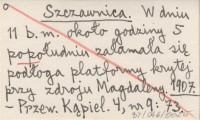 Szczawnica. W dniu
11 b. m. około godziny 5
popołudniu załamała się
podłoga platformy krytej
przy zdroju Magdaleny. 1907.
– Przew. Kąpiel. 4, nr 9: 73.